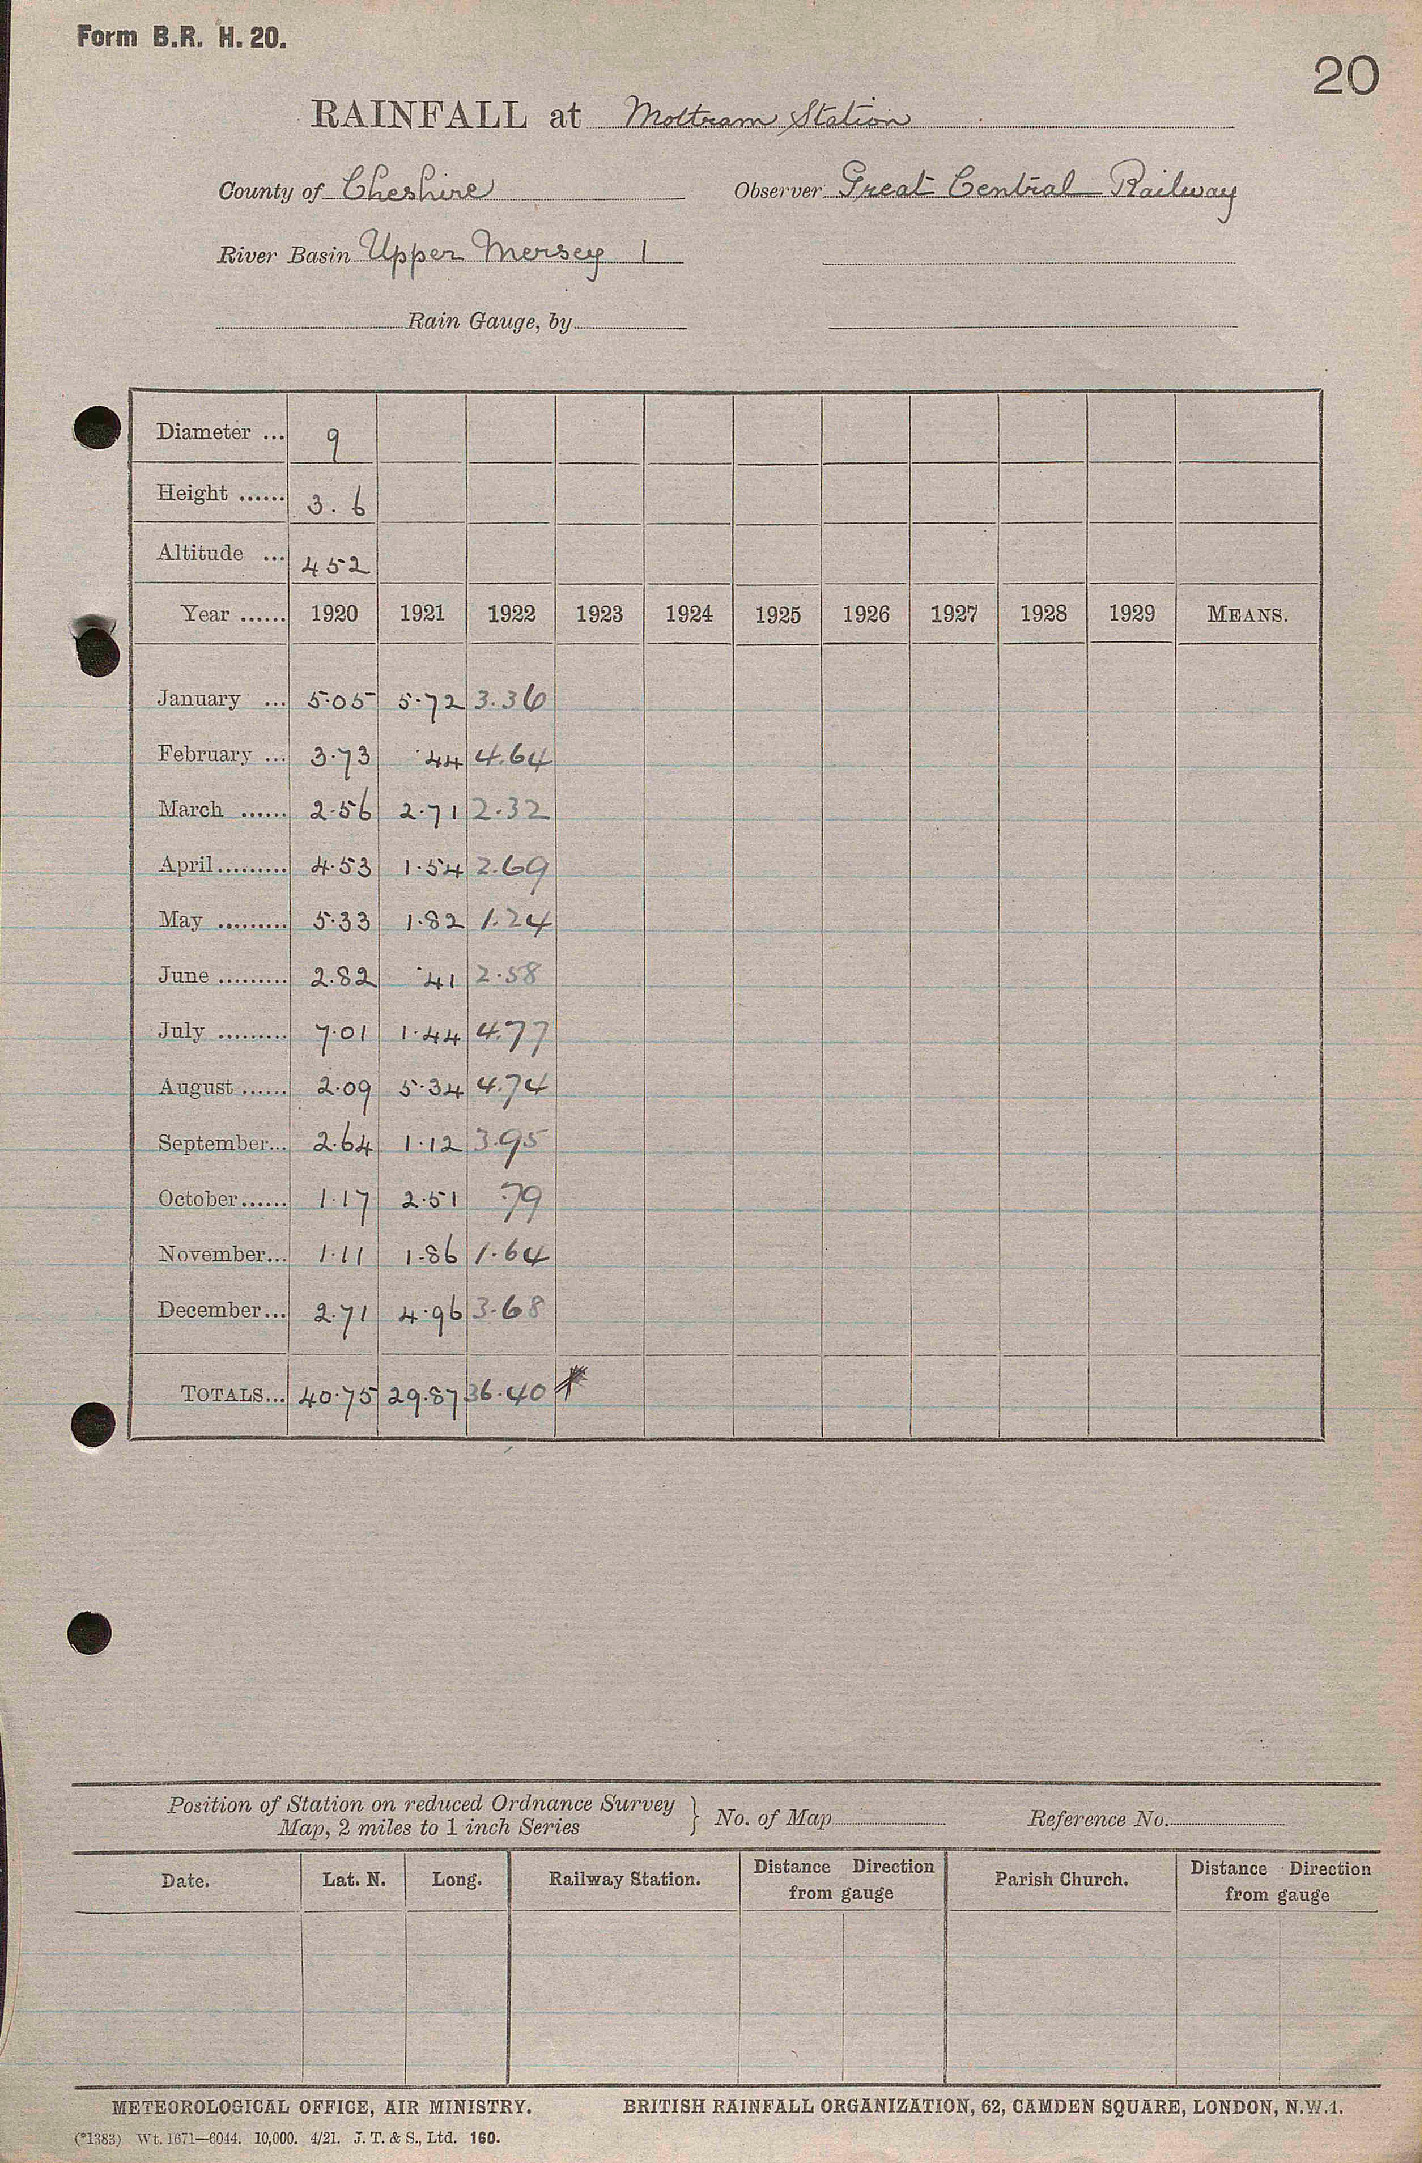 Form B.R. H. 20.
20
RAINFALL at Mottram Station
County of Cheshire Observer Great Central Railway
River Basin Upper Mersey 1
Rain Gauge, by
Diameter ... 9
Height ...... 3. 6
Altitude ... 452
Year ...... 1920 1921 1922 1923 1924 1925 1926 1927 1928 1929 MEANS.
January ... 5.05 5.72 3.36
February ... 3.73 .44 4.64
March ...... 2.56 2.71 2.32
April......... 4.53 1.54 2.69
May ......... 5.33 1.82 1.24
June ......... 2.82 .41 2.58
July ......... 7.01 1.44 4.77
August ...... 2.09 5.34 4.74
September... 2.64 1.12 3.95
October...... 1.17 2.51 .79
November... 1.11 1.86 1.64
December... 2.71 4.96 3.68
TOTALS... 40.75 29.87 36.40
Position of Station on reduced Ordnance Survey
Map, 2 miles to 1 inch Series } No. of Map Reference No.
Date. Lat. N. Long. Railway Station. Distance Direction from gauge Parish Church. Distance Direction from gauge
METEOROLOGICAL OFFICE, AIR MINISTRY. BRITISH RAINFALL ORGANIZATION, 62, CAMDEN SQUARE, LONDON, N.W.1.
(*1383) Wt. 1671—6044. 10,000. 4/21. J. T. & S., Ltd. 160.